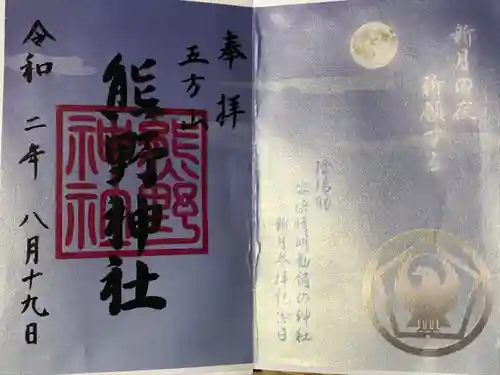 奉拝
五方山
熊野神社
熊野
神社
令和二年八月十九日
新月の夜
祈願する
陰陽師
安倍晴明勧請の神社
新月参拝記念日